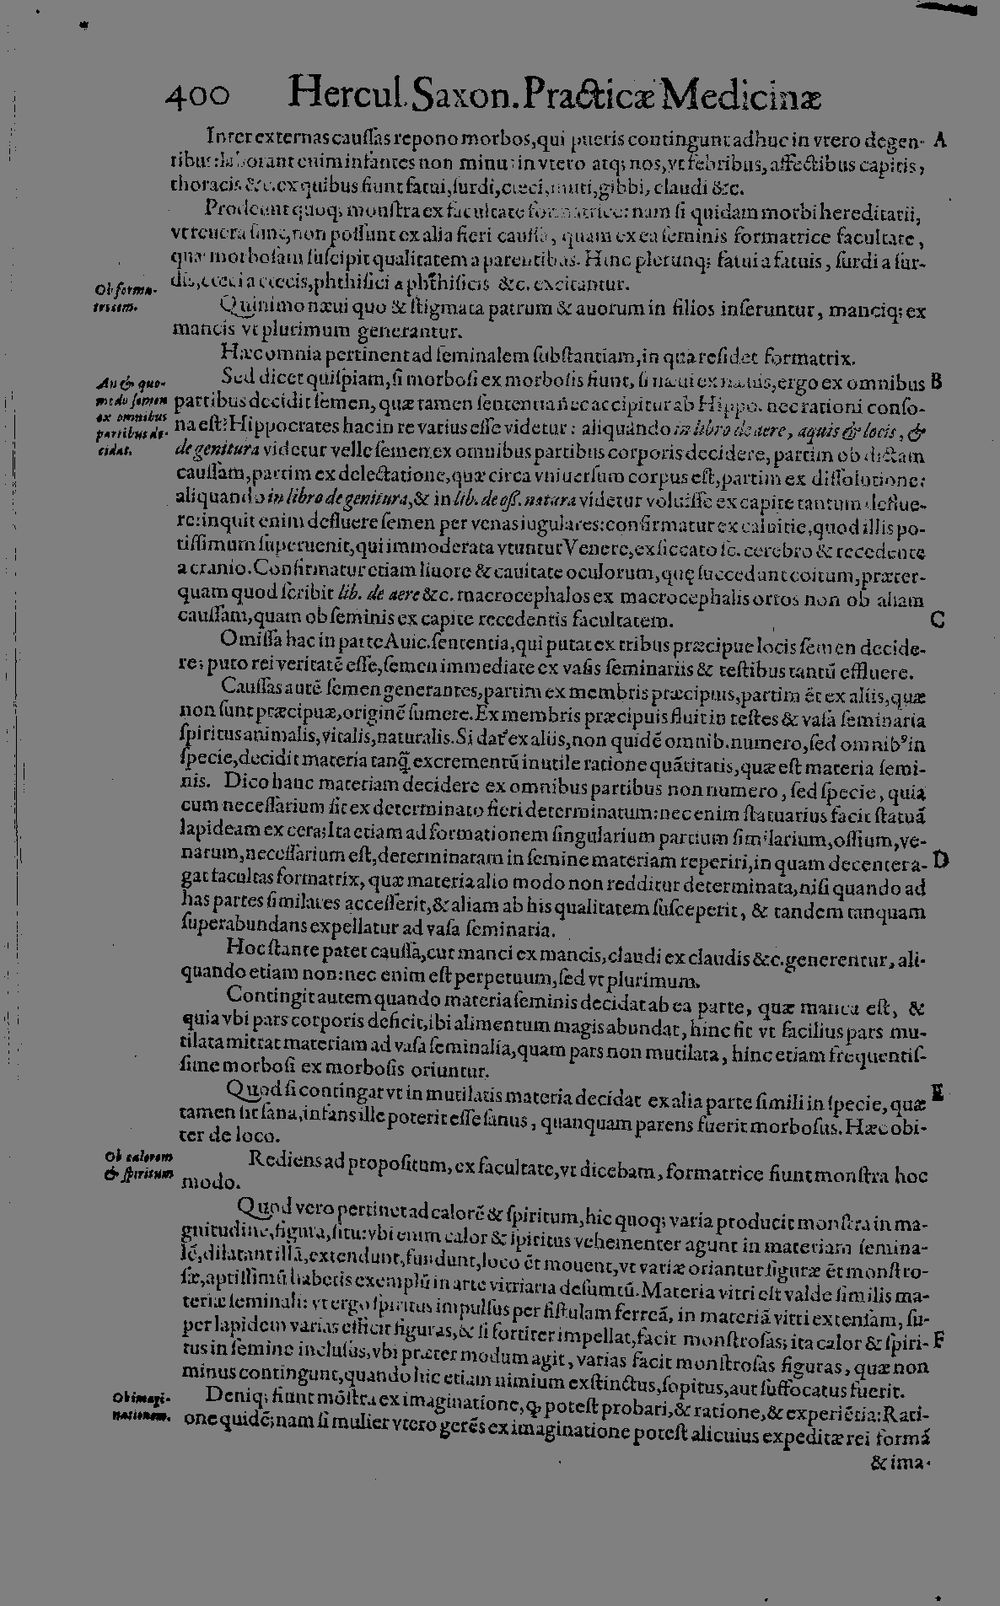 400 Hercul. Saxon. Practicæ Medicinæ
Inter externas caussas repono morbos, qui pueris contingunt adhuc in vtero degen- A
tibus: laborant enim infantes non minus in vtero atq; nos, vt febribus, affectibus capitis,
thoracis &c. ex quibus fiunt fatui, surdi, cæci, muti, gibbi, claudi &c.
Prodeunt quoq; monstra ex facultate formatrice: nam si quidam morbi hereditarii,
vt reuera sunt, non possunt ex alia fieri caussa, quam ex ea seminis formatrice facultate,
quæ morbosam suscipit qualitatem a parentibus. Hinc plerunq; fatui a fatuis, surdi a sur-
dis, cœci a cœcis, phthisici a phthisicis &c. excitantur.
Ob forma-
tricem.
Quinimo næui quo & stigmata patrum & auorum in filios inseruntur, manciq; ex
mancis vt plurimum generantur.
Hæc omnia pertinent ad seminalem substantiam, in qua residet formatrix.
An & quo-
modo semen
ex omnibus
partibus de-
cidat.
Sed dicet quispiam, si morbosi ex morbosis fiunt, si næui ex næuis, ergo ex omnibus B
partibus decidit semen, quæ tamen sententia nec accipitur ab Hippo. nec rationi conso-
na est: Hippocrates hac in re varius esse videtur: aliquando in libro de aere, aquis & locis, &
de genitura videtur velle semen ex omnibus partibus corporis decidere, partim ob dictam
caussam, partim ex delectatione, quæ circa vniuersum corpus est, partim ex dissolutione:
aliquando in libro de genitura, & in lib. de oss. natura videtur voluisse ex capite tantum deflue-
re: inquit enim defluere semen per venas iugulares: confirmatur ex caluitie, quod illis po-
tissimum superuenit, qui immoderata vtuntur Venere, exsiccato sc. cerebro & recedente
a cranio. Confirmatur etiam liuore & cauitate oculorum, quę succedunt coitum, præter-
quam quod scribit lib. de aere &c. macrocephalos ex macrocephalis ortos non ob aliam
caussam, quam ob seminis ex capite recedentis facultatem. C
Omissa hac in parte Auic. sententia, qui putat ex tribus præcipue locis semen decide-
re; puto rei veritatē esse, semen immediate ex vasis seminariis & testibus tantū effluere.
Caussas autē semen generantes, partim ex membris præcipuis, partim ēt ex aliis, quæ
non sunt præcipuæ, originē sumere. Ex membris præcipuis fluit in testes & vasa seminaria
spiritus animalis, vitalis, naturalis. Si dat' ex aliis, non quidē omnib. numero, sed omnib⁹ in
specie, decidit materia tanq̃ excrementū inutile ratione quātitatis, quæ est materia semi-
nis. Dico hanc materiam decidere ex omnibus partibus non numero, sed specie, quia
cum necessarium sit ex determinato fieri determinatum: nec enim statuarius facit statuā
lapideam ex cera; Ita etiam ad formationem singularium partium similarium, ossium, ve-
narum, necessarium est, determinatam in semine materiam reperiri, in quam decenter a- D
gat facultas formatrix, quæ materia alio modo non redditur determinata, nisi quando ad
has partes similares accesserit, & aliam ab his qualitatem susceperit, & tandem tanquam
superabundans expellatur ad vasa seminaria.
Hoc stante patet caussa, cur manci ex mancis, claudi ex claudis &c. generentur, ali-
quando etiam non: nec enim est perpetuum, sed vt plurimum.
Contingit autem quando materia seminis decidat ab ea parte, quæ manca est, &
quia vbi pars corporis deficit, ibi alimentum magis abundat, hinc fit vt facilius pars mu-
tilata mittat materiam ad vasa seminalia, quam pars non mutilata, hinc etiam frequentis-
sime morbosi ex morbosis oriuntur.
Quod si contingat vt in mutilatis materia decidat ex alia parte simili in specie, quæ E
tamen sit sana, infans ille poterit esse sanus, quanquam parens fuerit morbosus. Hæc obi-
ter de loco.
Ob calorem
& spiritum
Rediens ad propositum, ex facultate, vt dicebam, formatrice fiunt monstra hoc
modo.
Quod vero pertinet ad calorē & spiritum, hic quoq; varia producit monstra in ma-
gnitudine, figura, situ: vbi enim calor & spiritus vehementer agunt in materiam semina-
lē, dilatant illā, extendunt, fundunt, loco ēt mouent, vt variæ oriantur figuræ ēt monstro-
sæ, aptissimū habetis exemplū in arte vitriaria desumtū. Materia vitri est valde similis ma-
teriæ seminali: vt ergo spiritus impulsus per fistulam ferreā, in materiā vitri extensam, su-
per lapidem varias efficit figuras, & si fortiter impellat, facit monstrosas; ita calor & spiri- F
tus in semine inclusus, vbi præter modum agit, varias facit monstrosas figuras, quæ non
minus contingunt, quando hic etiam nimium exstinctus, sopitus, aut suffocatus fuerit.
Ob imagi-
nationem.
Deniq; fiunt mōstra ex imaginatione, q, potest probari, & ratione, & experiētia: Rati-
one quidē; nam si mulier vtero gerēs ex imaginatione potest alicuius expeditæ rei formā
& ima-